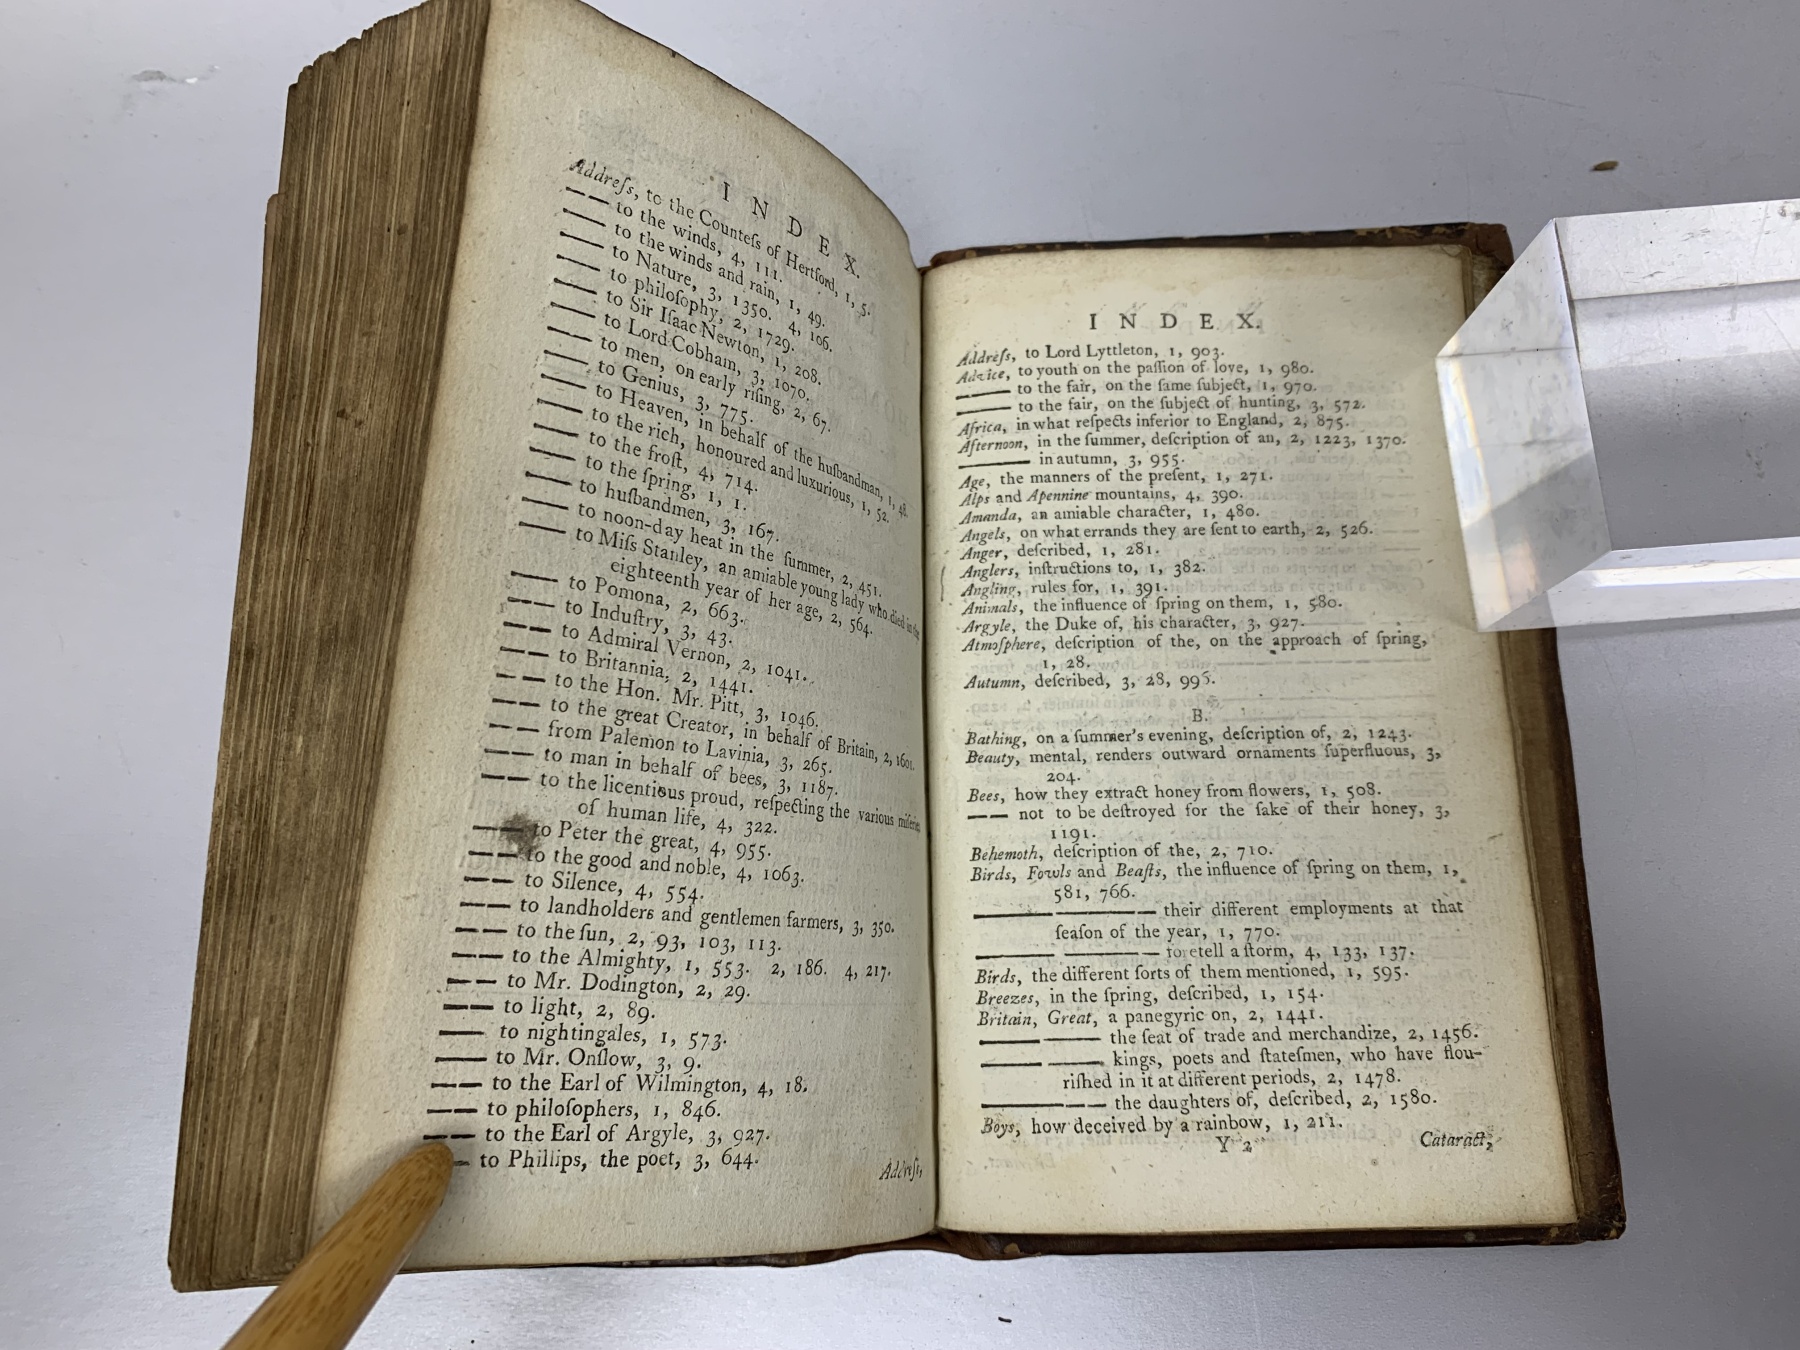 I N D E X.
Addreſs, to the Counteſs of Hertford, 1, 5.
—— to the winds, 4, 111.
—— to the winds and rain, 1, 49.
—— to Nature, 3, 1350. 4, 106.
—— to philoſophy, 2, 1729.
—— to Sir Iſaac Newton, 1, 208.
—— to Lord Cobham, 3, 1070.
—— to men, on early riſing, 2, 67.
—— to Genius, 3, 775.
—— to Heaven, in behalf of the huſbandman, 1, 48.
—— to the rich, honoured and luxurious, 1, 52.
—— to the froſt, 4, 714.
—— to the ſpring, 1, 1.
—— to huſbandmen, 3, 167.
—— to noon-day heat in the ſummer, 2, 451.
—— to Miſs Stanley, an amiable young lady who died in the
eighteenth year of her age, 2, 564.
—— to Pomona, 2, 663.
—— to Induſtry, 3, 43.
—— to Admiral Vernon, 2, 1041.
—— to Britannia, 2, 1441.
—— to the Hon. Mr. Pitt, 3, 1046.
—— to the great Creator, in behalf of Britain, 2, 1601.
—— from Palemon to Lavinia, 3, 265.
—— to man in behalf of bees, 3, 1187.
—— to the licentious proud, reſpecting the various miſeries
of human life, 4, 322.
—— to Peter the great, 4, 955.
—— to the good and noble, 4, 1063.
—— to Silence, 4, 554.
—— to landholders and gentlemen farmers, 3, 350.
—— to the ſun, 2, 93, 103, 113.
—— to the Almighty, 1, 553. 2, 186. 4, 217.
—— to Mr. Dodington, 2, 29.
—— to light, 2, 89.
—— to nightingales, 1, 573.
—— to Mr. Onſlow, 3, 9.
—— to the Earl of Wilmington, 4, 18.
—— to philoſophers, 1, 846.
—— to the Earl of Argyle, 3, 927.
— to Phillips, the poet, 3, 644.
Addreſs,
I N D E X.
Addreſs, to Lord Lyttleton, 1, 903.
Advice, to youth on the paſſion of love, 1, 980.
—— to the fair, on the ſame ſubject, 1, 970.
—— to the fair, on the ſubject of hunting, 3, 572.
Africa, in what reſpects inferior to England, 2, 875.
Afternoon, in the ſummer, deſcription of an, 2, 1223, 1370.
——— in autumn, 3, 955.
Age, the manners of the preſent, 1, 271.
Alps and Apennine mountains, 4, 390.
Amanda, an amiable character, 1, 480.
Angels, on what errands they are ſent to earth, 2, 526.
Anger, deſcribed, 1, 281.
Anglers, inſtructions to, 1, 382.
Angling, rules for, 1, 391.
Animals, the influence of ſpring on them, 1, 580.
Argyle, the Duke of, his character, 3, 927.
Atmoſphere, deſcription of the, on the approach of ſpring,
1, 28.
Autumn, deſcribed, 3, 28, 995.
B.
Bathing, on a ſummer's evening, deſcription of, 2, 1243.
Beauty, mental, renders outward ornaments ſuperfluous, 3,
204.
Bees, how they extract honey from flowers, 1, 508.
—— not to be deſtroyed for the ſake of their honey, 3,
1191.
Behemoth, deſcription of the, 2, 710.
Birds, Fowls and Beaſts, the influence of ſpring on them, 1,
581, 766.
——— ———— their different employments at that
ſeaſon of the year, 1, 770.
——— ———— foretell a ſtorm, 4, 133, 137.
Birds, the different ſorts of them mentioned, 1, 595.
Breezes, in the ſpring, deſcribed, 1, 154.
Britain, Great, a panegyric on, 2, 1441.
—— —— the ſeat of trade and merchandize, 2, 1456.
—— —— kings, poets and ſtateſmen, who have flou-
riſhed in it at different periods, 2, 1478.
—— —— the daughters of, deſcribed, 2, 1580.
Boys, how deceived by a rainbow, 1, 211.
Y 2
Cataract,